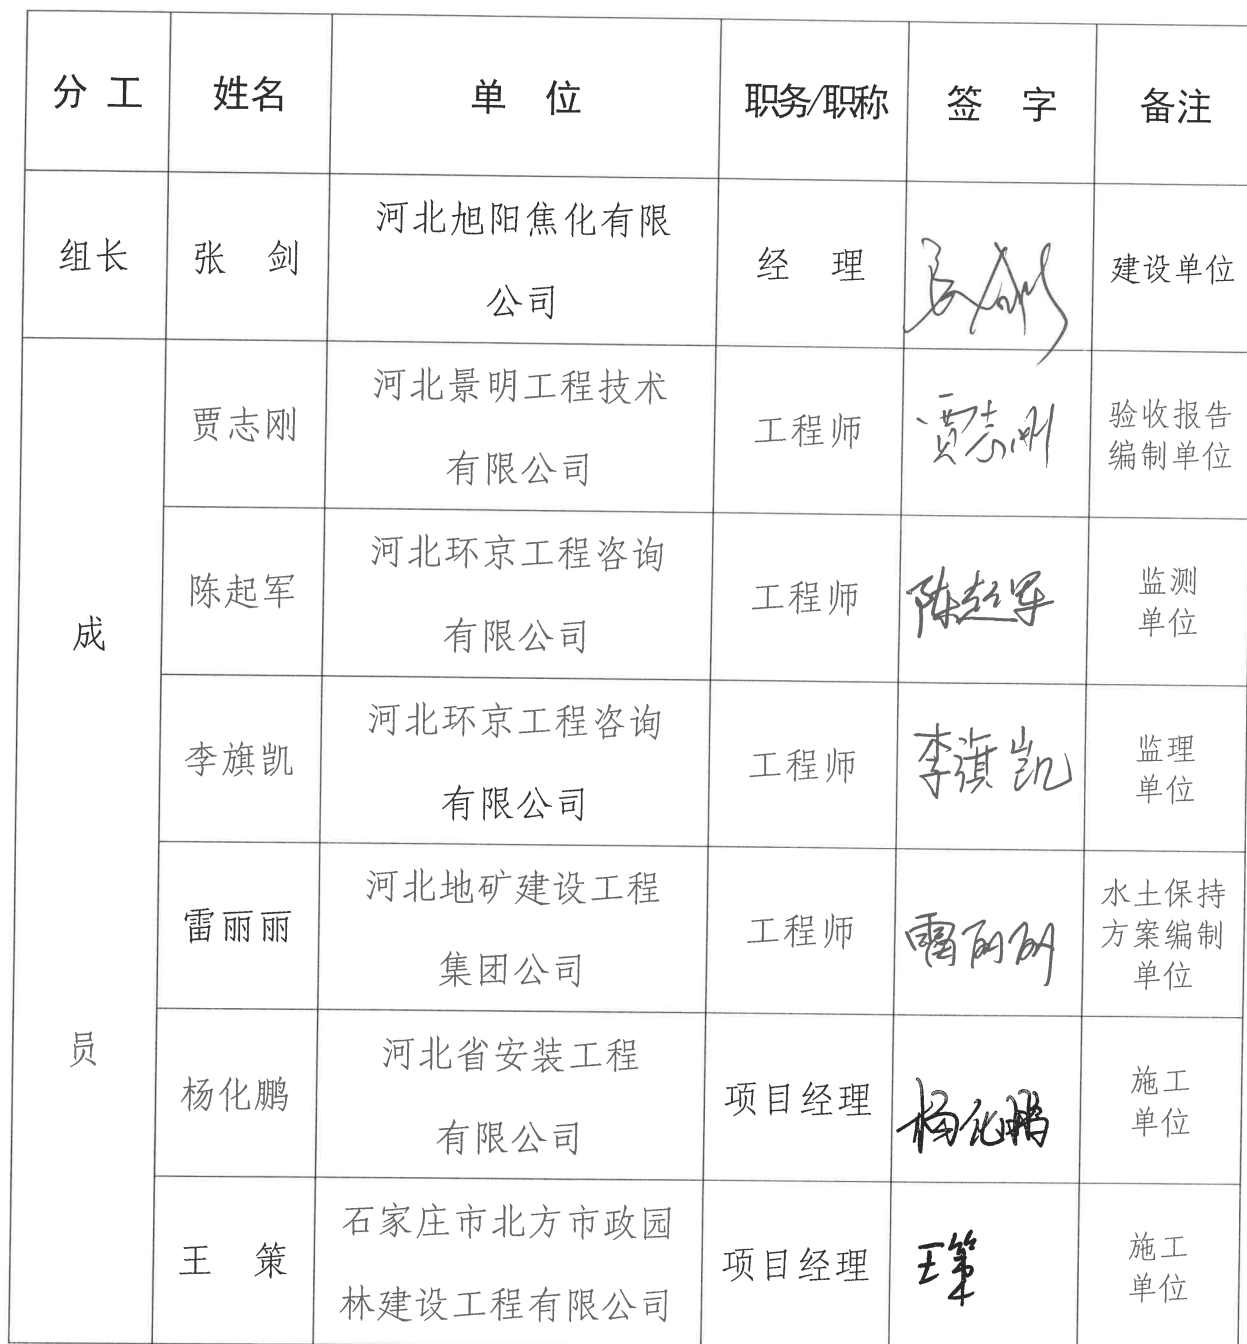 分 工 姓名 单 位 职务/职称 签 字 备注
组长 张 剑 河北旭阳焦化有限
公司
经 理 张剑 建设单位
成
员
贾志刚 河北景明工程技术
有限公司
工程师 贾志刚 验收报告
编制单位
陈起军 河北环京工程咨询
有限公司
工程师 陈起军 监测
单位
李旗凯 河北环京工程咨询
有限公司
工程师 李旗凯 监理
单位
雷丽丽 河北地矿建设工程
集团公司
工程师 雷丽丽 水土保持
方案编制
单位
杨化鹏 河北省安装工程
有限公司
项目经理 杨化鹏 施工
单位
王 策 石家庄市北方市政园
林建设工程有限公司
项目经理 王策 施工
单位